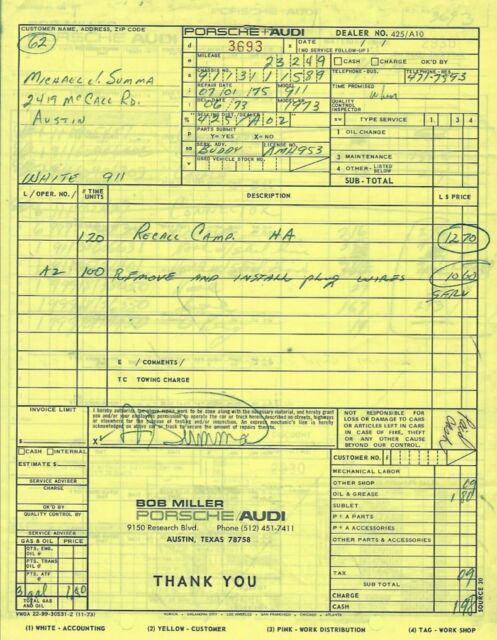 CUSTOMER NAME, ADDRESS, ZIP CODE
62
Michael J. Summa
2419 McCall Rd.
Austin
WHITE 911
PORSCHE + AUDI
DEALER NO. 425/A10
3693
DATE / /
(NO SERVICE FOLLOW-UP)
MILEAGE
23249
CASH CHARGE OK'D BY
CHASSIS NO.
9113111589
TELEPHONE-BUS. TELEPHONE-RES.
471-7593
REPAIR DATE MODEL
07 01 75 911
TIME PROMISED
When
DEL. DATE MODEL YR.
06 73 1973
QUALITY CONTROL INSPECTOR
SELLING DIST./DEALER
425/A02
SV TYPE SERVICE 1 3 4
PARTS SUBMIT
Y= YES X= NO
1 OIL CHANGE
SERV. ADV. LICENSE NO.
BUDDY AMH953
3 MAINTENANCE
USED VEHICLE STOCK NO.
4 OTHER-LISTED BELOW
SUB-TOTAL
L / OPER. NO. / # TIME UNITS DESCRIPTION L $ PRICE
120 RECALL CAMP. HA 1270
A2 100 REMOVE AND INSTALL plug WIRES 1060
SERV
E / COMMENTS /
TC TOWING CHARGE
INVOICE LIMIT
$
I hereby authorize the above repair work to be done along with the necessary material, and hereby grant
you and/or your employees permission to operate the car or truck herein described on streets, highways
or elsewhere for the purpose of testing and/or inspection. An express mechanic's lien is hereby
acknowledged on above car or truck to secure the amount of repairs thereto.
X Summa
NOT RESPONSIBLE FOR
LOSS OR DAMAGE TO CARS
OR ARTICLES LEFT IN CARS
IN CASE OF FIRE, THEFT
OR ANY OTHER CAUSE
BEYOND OUR CONTROL.
Paid Cash
CASH INTERNAL
ESTIMATE $
SERVICE ADVISER
CHARGE
OK'D BY
QUALITY CONTROL BY
SERVICE ADVISER
GAS & OIL PRICE
QTS. ENG. OIL @
PTS. TRANS OIL @
PTS. ATF @
3 gal 1.80
TOTAL GAS AND OIL
BOB MILLER
PORSCHE/AUDI
9150 Research Blvd. Phone (512) 451-7411
AUSTIN, TEXAS 78758
THANK YOU
CUSTOMER NO.
MECHANICAL LABOR
OTHER SHOP 09
OIL & GREASE 1 80
SUBLET
P + A PARTS
P + A ACCESSORIES
OTHER PARTS & ACCESSORIES
TAX 09
SUB TOTAL
CHARGE
CASH 198
SOURCE 20
VWOA 22-99-30531-2 (11-73)
(1) WHITE - ACCOUNTING (2) YELLOW - CUSTOMER (3) PINK - WORK DISTRIBUTION (4) TAG - WORK SHOP